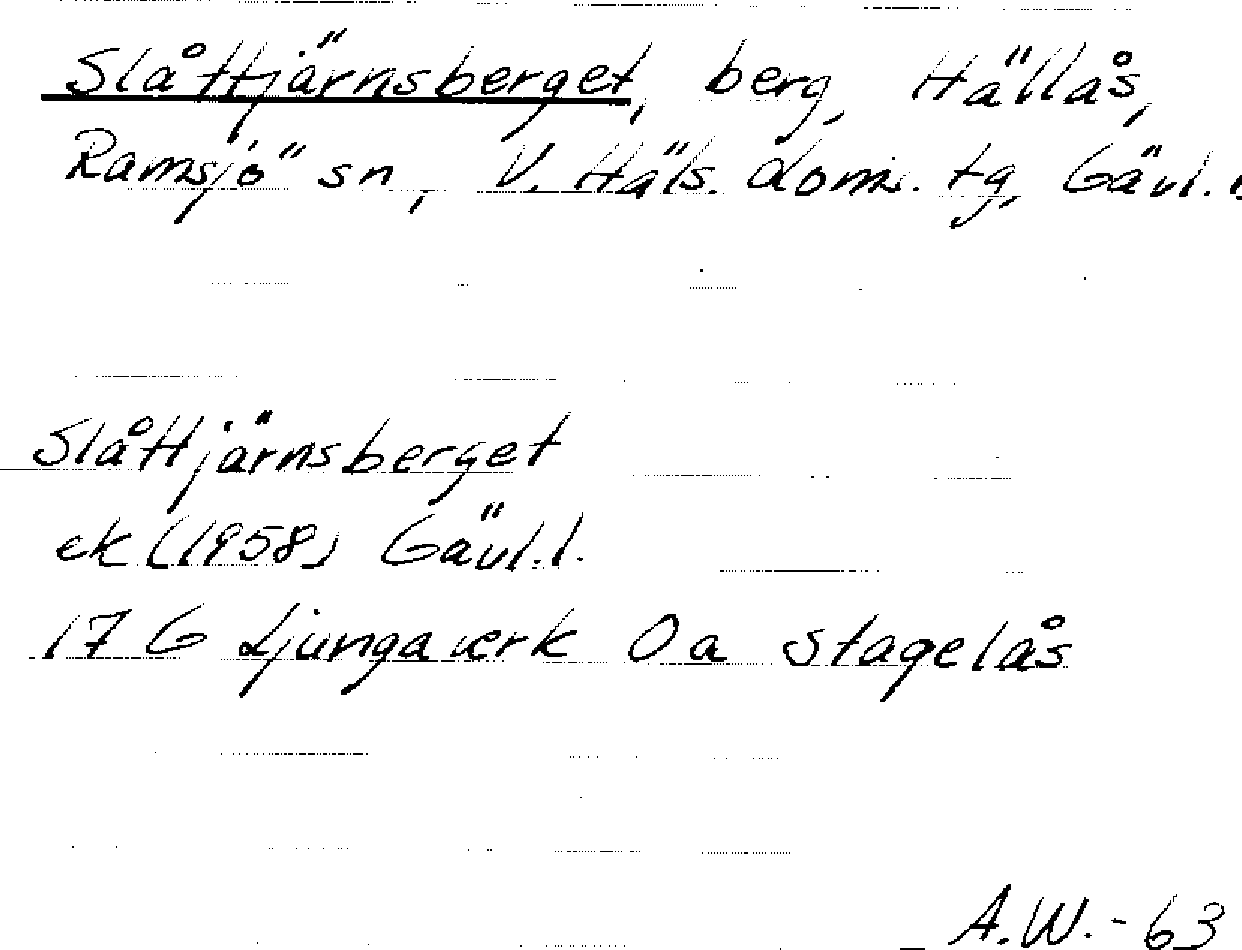 Slåttjärnsberget, berg, Hällås,
Ramsjö sn, V. Häls. doms. tg, Gävl.
Slåttjärnsberget
ek (1958) Gävl.l.
17 G Ljungaverk 0a Stagelås
A.W.-63